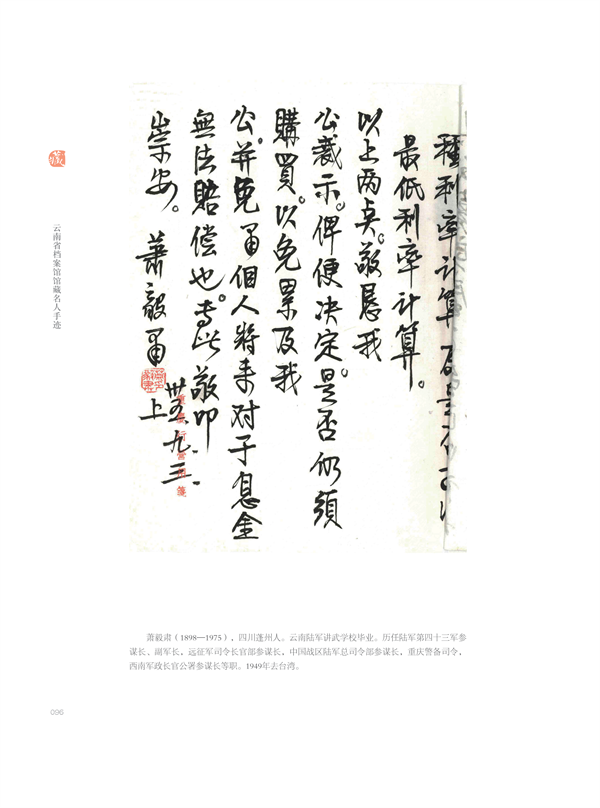 種利率計算
最低利率計算。
以上两点。敬恳我
公裁示。俾便决定。是否仍須
購買。以免累及我
公。并免
個人将来对于息金
無法賠偿也。专此敬叩
崇安。
萧毅肃
上
卅五.九.三.
云南省档案馆馆藏名人手迹
萧毅肃（1898—1975），四川蓬州人。云南陆军讲武学校毕业。历任陆军第四十三军参
谋长、副军长，远征军司令长官部参谋长，中国战区陆军总司令部参谋长，重庆警备司令，
西南军政长官公署参谋长等职。1949年去台湾。
096